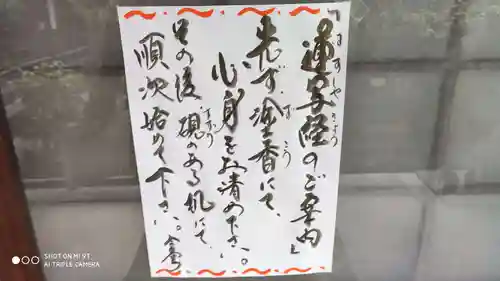 「蓮写経のご案内」
先ず塗香にて、
心身をお清め下さい。
その後硯のある机にて、
順次始めて下さい。
SHOT ON MI 9T
AI TRIPLE CAMERA